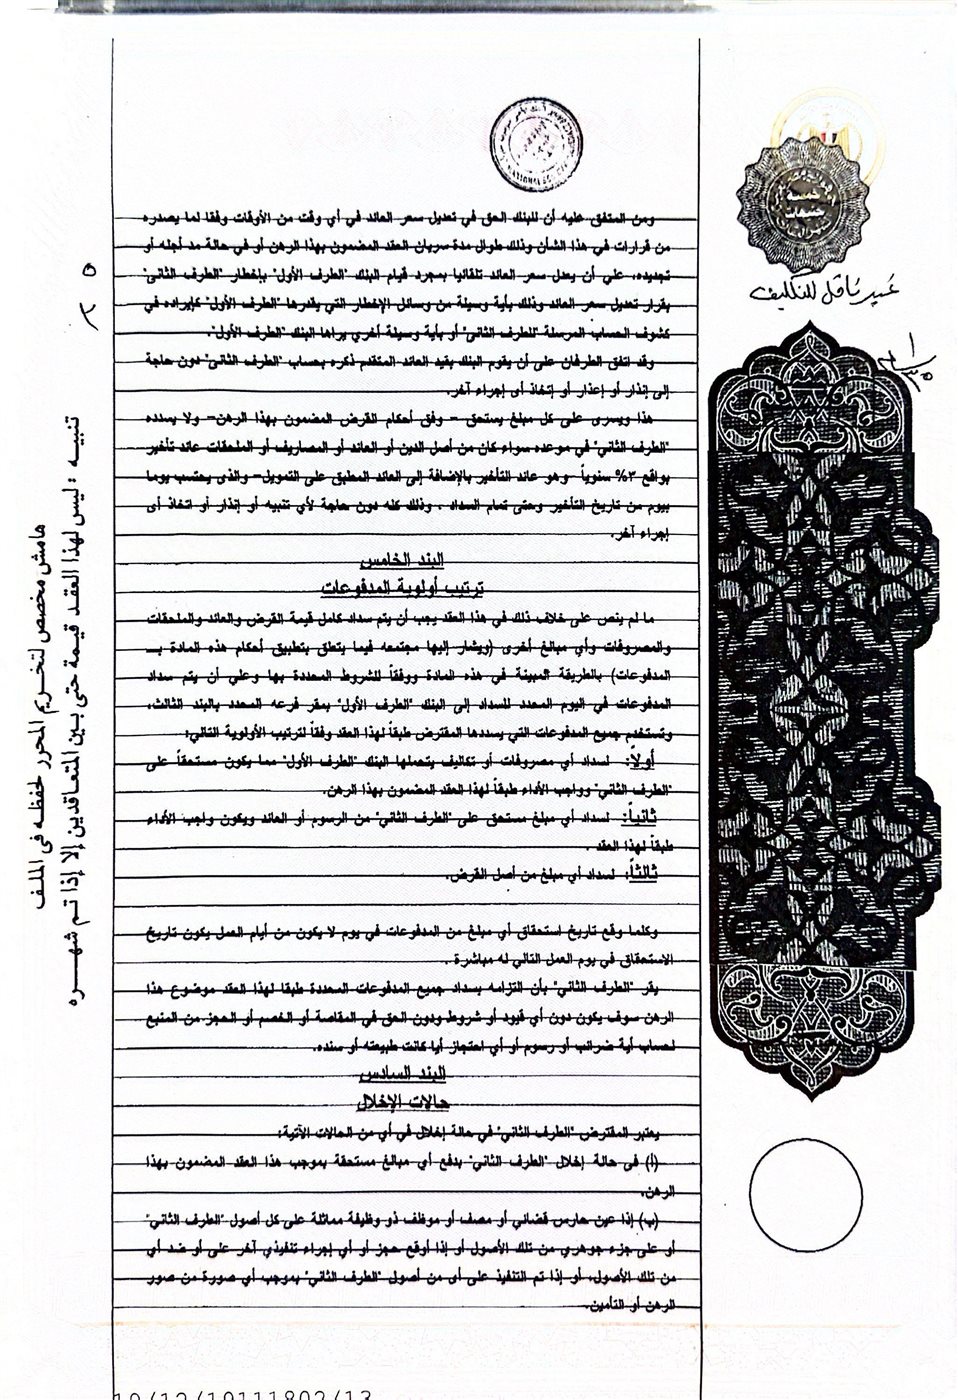 ومن المتفق عليه أن للبنك الحق في تعديل سعر العائد في أي وقت من الأوقات وفقا لما يصدره
من قرارات في هذا الشأن وذلك طوال مدة سريان العقد المضمون بهذا الرهن أو في حالة مد أجله أو
تجديده، علي أن يعدل سعر العائد تلقائيا بمجرد قيام البنك "الطرف الأول" بإخطار "الطرف الثانى"
بقرار تعديل سعر العائد وذلك بأية وسيلة من وسائل الإخطار التي يقدرها "الطرف الأول" كإيراده في
كشوف الحساب المرسلة "للطرف الثانى" أو بأية وسيلة أخري يراها البنك "الطرف الأول".
وقد اتفق الطرفان على أن يقوم البنك بقيد العائد المتقدم ذكره بحساب "الطرف الثانى" دون حاجة
إلى إنذار أو إعذار أو إتخاذ أى إجراء آخر.
هذا ويسرى على كل مبلغ يستحق – وفق أحكام القرض المضمون بهذا الرهن– ولا يسدده
"الطرف الثاني" في موعده سواء كان من أصل الدين أو العائد أو المصاريف أو الملحقات عائد تأخير
بواقع ٣% سنوياً – وهو عائد التأخير بالإضافة إلى العائد المطبق على التمويل– والذى يحتسب يوما
بيوم من تاريخ التأخير وحتى تمام السداد ، وذلك كله دون حاجة لأي تنبيه أو إنذار أو اتخاذ أى
إجراء آخر.
البند الخامس
ترتيب أولوية المدفوعات
ما لم ينص على خلاف ذلك في هذا العقد يجب أن يتم سداد كامل قيمة القرض والعائد والملحقات
والمصروفات وأي مبالغ أخرى (ويشار إليها مجتمعه فيما يتعلق بتطبيق أحكام هذه المادة بـ
المدفوعات) بالطريقة المبينة في هذه المادة ووفقاً للشروط المحددة بها وعلي أن يتم سداد
المدفوعات في اليوم المحدد للسداد إلى البنك "الطرف الأول" بمقر فرعه المحدد بالبند الثالث،
وتستخدم جميع المدفوعات التي يسددها المقترض طبقاً لهذا العقد وفقاً لترتيب الأولوية التالي:
أولاً: لسداد أي مصروفات أو تكاليف يتحملها البنك "الطرف الأول" مما يكون مستحقاً على
"الطرف الثاني" وواجب الأداء طبقاً لهذا العقد المضمون بهذا الرهن.
ثانياً: لسداد أي مبلغ مستحق على "الطرف الثاني" من الرسوم أو العائد ويكون واجب الأداء
طبقاً لهذا العقد .
ثالثاً: لسداد أي مبلغ من أصل القرض.
وكلما وقع تاريخ استحقاق أي مبلغ من المدفوعات في يوم لا يكون من أيام العمل يكون تاريخ
الاستحقاق في يوم العمل التالي له مباشرة .
يقر "الطرف الثاني" بأن التزامه بسداد جميع المدفوعات المحددة طبقا لهذا العقد موضوع هذا
الرهن سوف يكون دون أي قيود أو شروط ودون الحق في المقاصة أو الخصم أو الحجز من المنبع
لحساب أية ضرائب أو رسوم أو أي احتجاز أيا كانت طبيعته أو سنده.
البند السادس
حالات الإخلال
يعتبر المقترض "الطرف الثاني" في حالة إخلال في أي من الحالات الآتية:
(أ) فى حالة إخلال "الطرف الثاني" بدفع أي مبالغ مستحقة بموجب هذا العقد المضمون بهذا
الرهن.
(ب) إذا عين حارس قضائي أو مصف أو موظف ذو وظيفة مماثلة على كل أصول "الطرف الثاني"
أو على جزء جوهري من تلك الأصول أو إذا أوقع حجز أو أي إجراء تنفيذي آخر على أو ضد أي
من تلك الأصول، أو إذا تم التنفيذ على أى من أصول "الطرف الثاني" بموجب أي صورة من صور
الرهن أو التأمين.
هامش مخصص لتخريم المحرر لحفظه فى الملف
تنبيه : ليس لهذا العقد قيمة حتى بين المتعاقدين إلا إذا تم شهره
٣
٥
خمسة
جنيهات
غير ناقل للتكليف